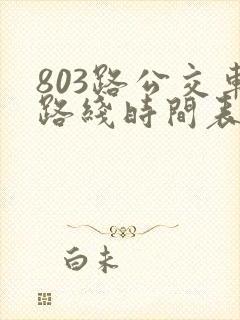 803路公交車
路綫時間表
白未